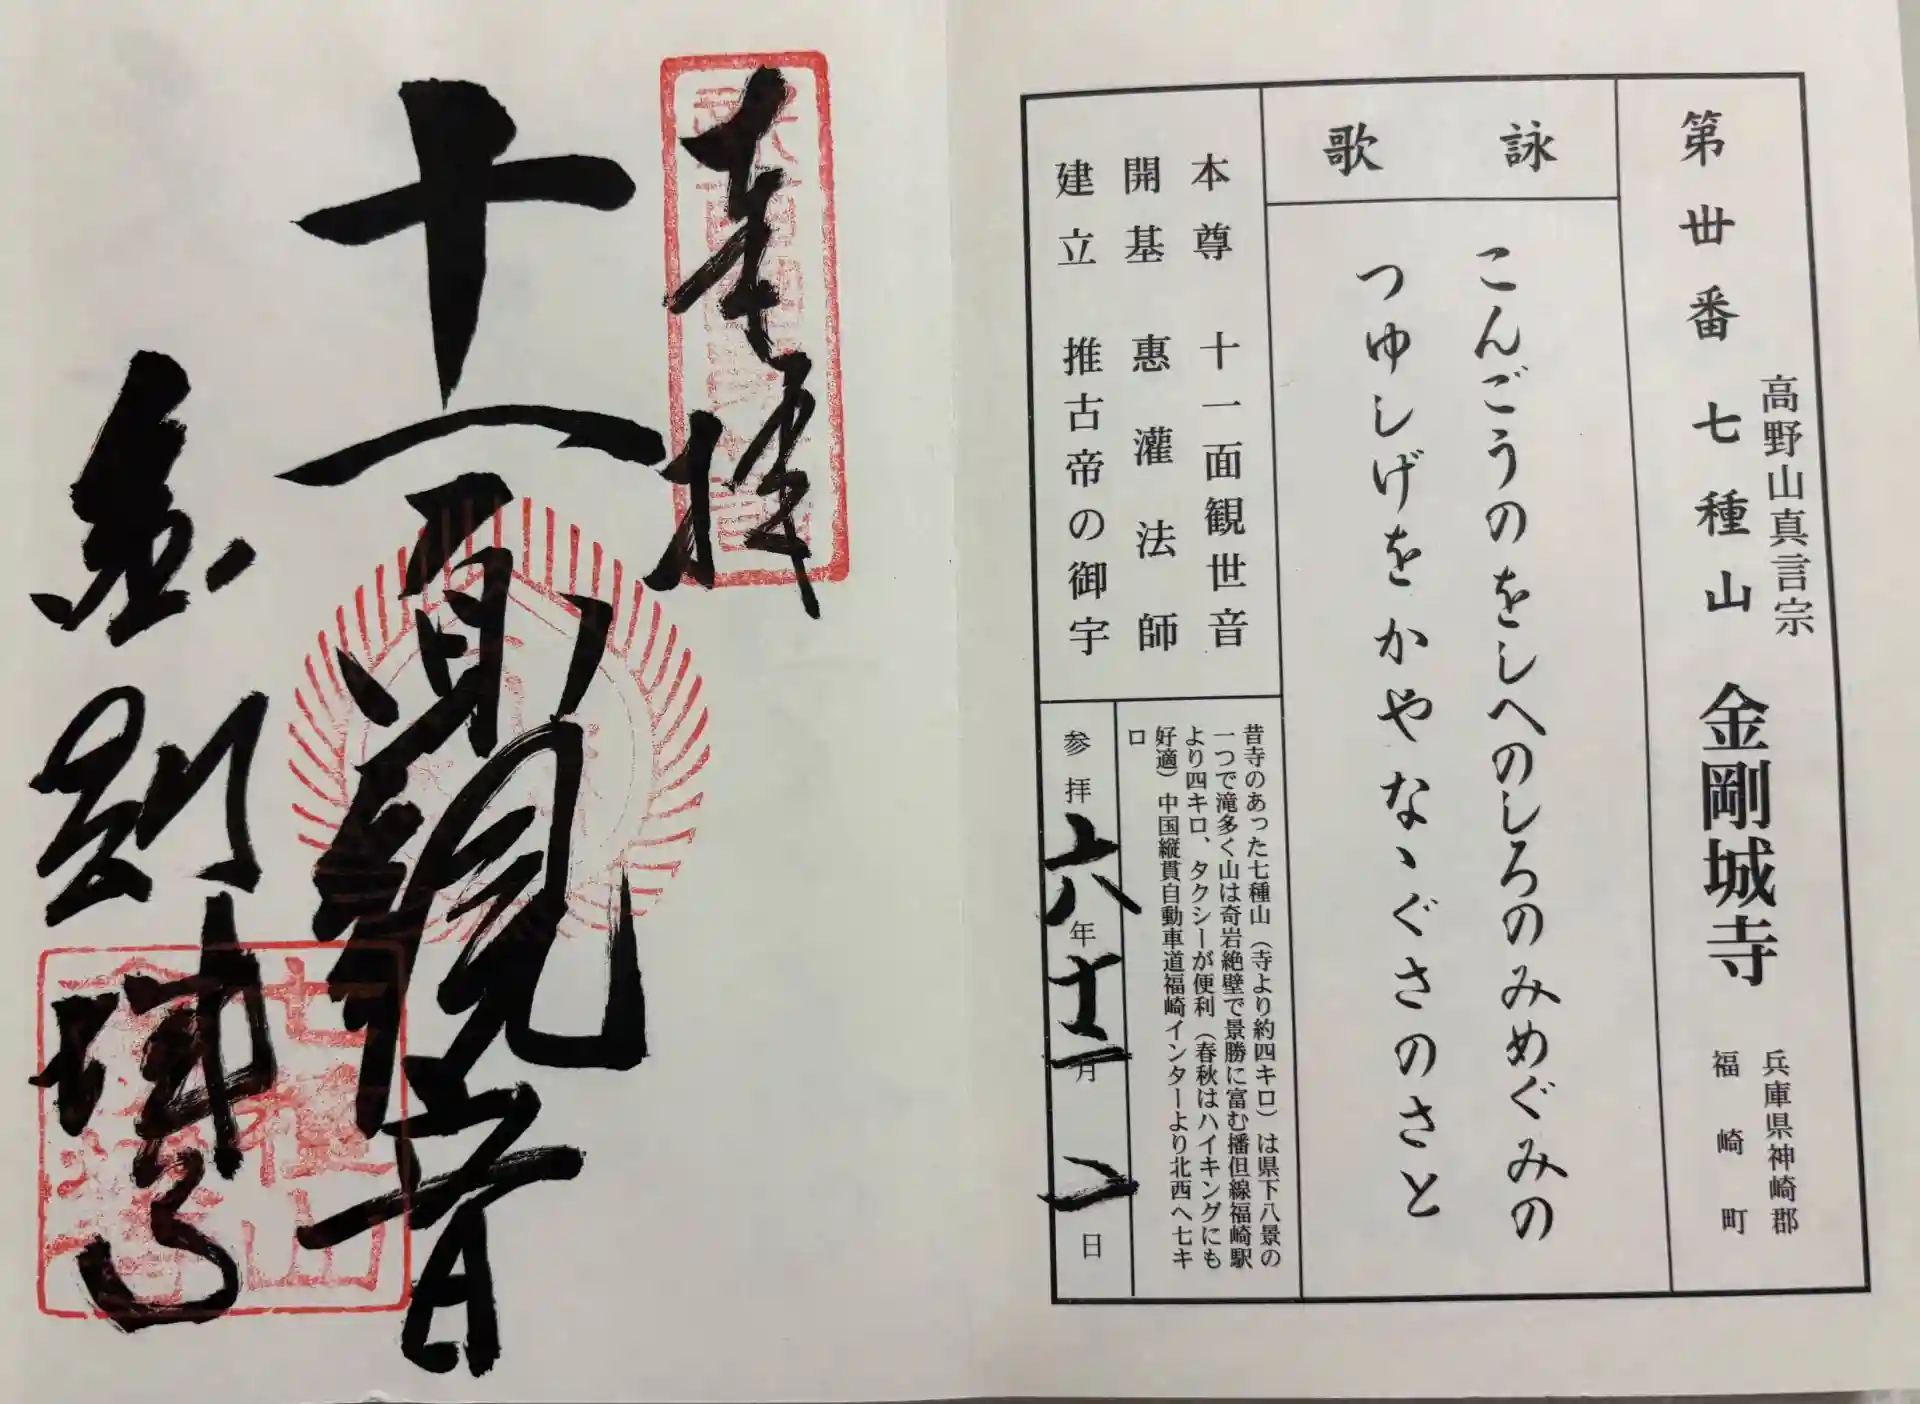 第丗番 七種山 金剛城寺
高野山真言宗
兵庫県神崎郡
福崎町
詠歌
こんごうのをしへのしろのみめぐみの
つゆしげをかやなゝぐさのさと
本尊 十一面観世音
開基 惠灌法師
建立 推古帝の御宇
昔寺のあった七種山(寺より約四キロ)は県下八景の
一つで滝多く山は奇岩絶壁で景勝に富む播但線福崎駅
より四キロ、タクシーが便利(春秋はハイキングにも
好適)中国縦貫自動車道福崎インターより北西へ七キ
ロ
参拝 六年 十一月 二日
奉拝
十一面観音
金剛城寺
七種山